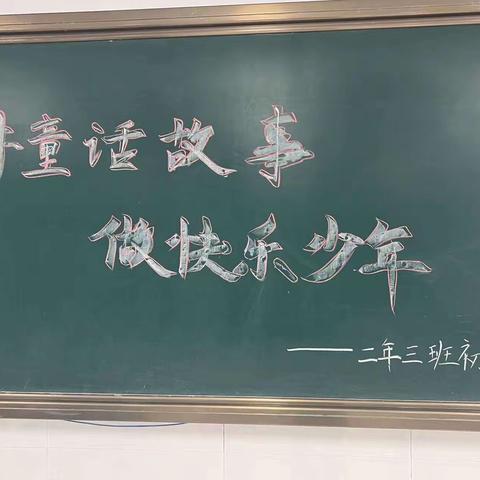 童话故事
做快乐少年
——二年三班初